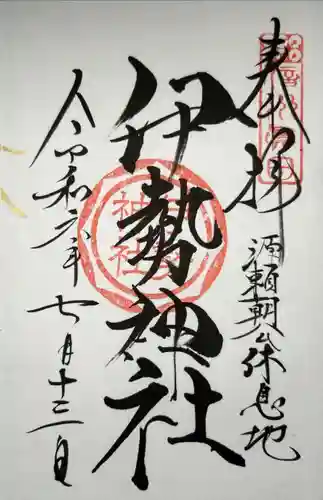 奉拝
源頼朝公休息地
伊勢神社
令和六年七月十三日